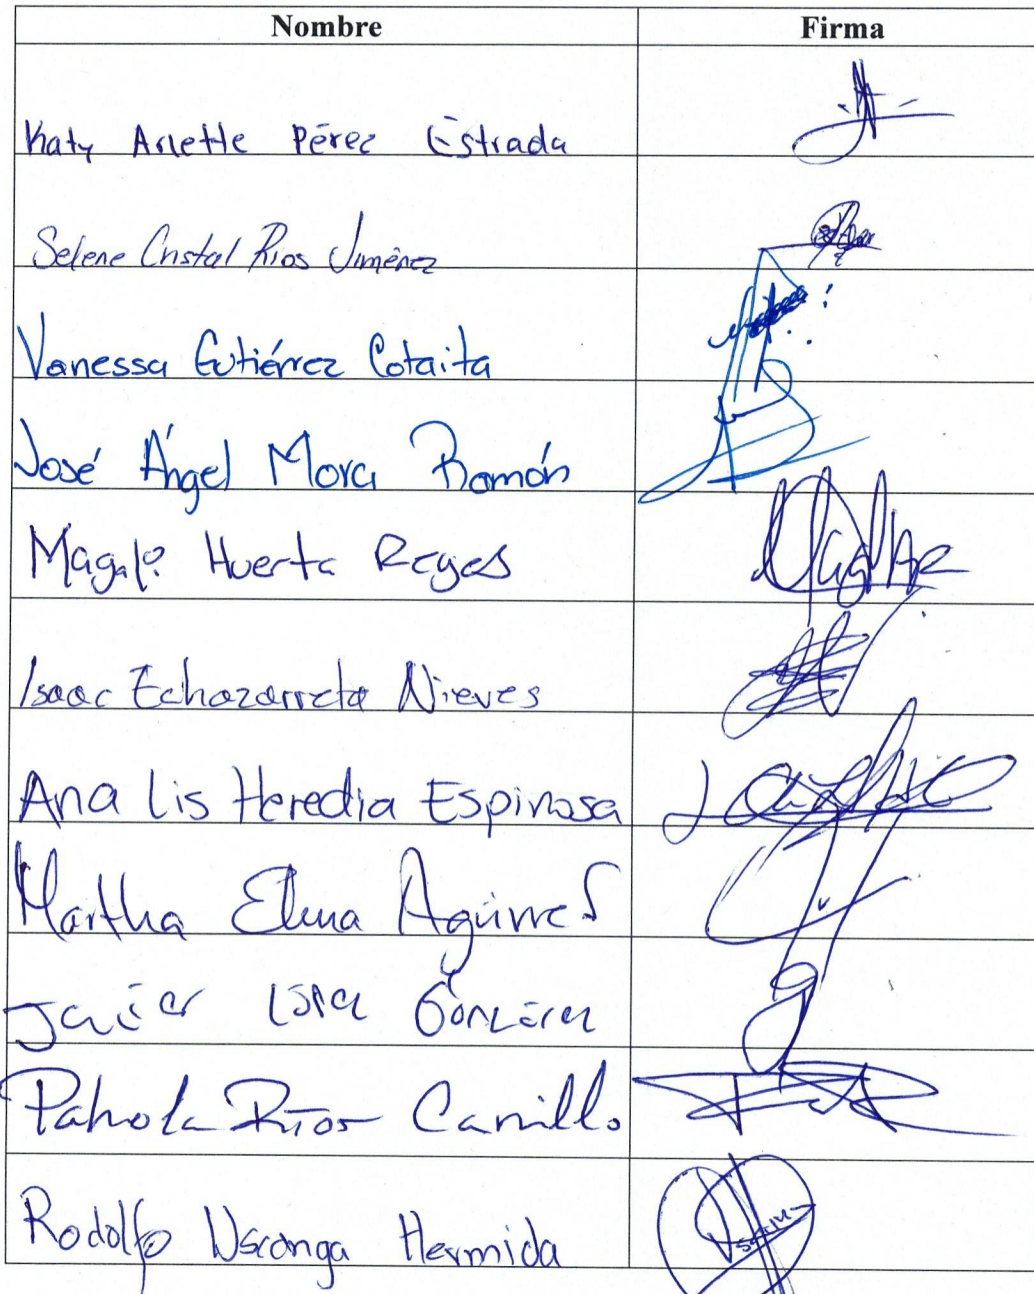 Nombre Firma
Katy Arlette Pérez Estrada
Selene Cristal Rios Jiménez
Vanessa Gutiérrez Cotaita
José Ángel Mora Román
Magali Huerta Reyes
Isaac Echazarreta Nieves
Ana Lis Heredia Espinosa
Martha Elena Aguirre S
Javier López González
Pahola Ríos Carrillo
Rodolfo Uscanga Hermida